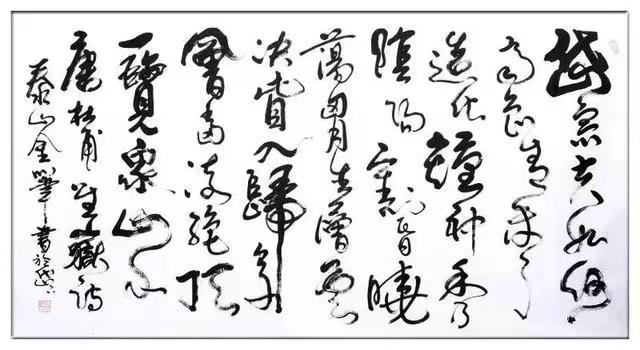 岱宗夫如何
齊魯青未了
造化鍾神秀
陰陽割昏曉
蕩胷生層雲
決眥入歸鳥
會當凌絕頂
一覽眾山小
唐杜甫望嶽詩
泰山金書於岱下